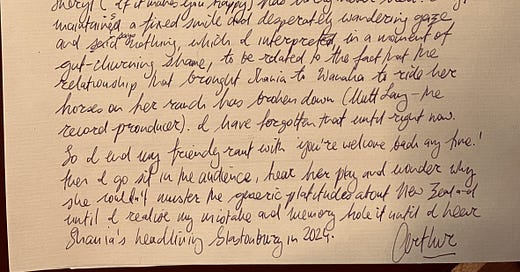 Sheryl ("If it makes you happy") has
maintained a fixed smile and desperately wandering gaze
and said nothing, which I interpreted, in a moment of
gut-churning shame, to be related to the fact that the
relationship that brought Shania to Wanaka to ride her
horses on her ranch has broken down (Mutt Lang - the
record prouducer). I have forgotten that until right now.
So I end my friendly rant with 'you're welcome back any time.'
Then I go sit in the audience, hear her play and wonder why
she couldn't muster the generic platitudes about New Zealand
until I realise my mistake and memory hole it until I hear
Shania's headlining Glastonbury in 2024.
Arthur